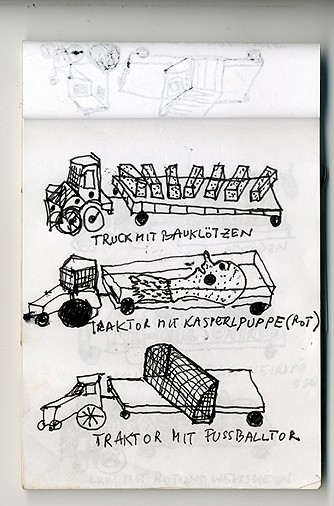 TRUCK MIT BAUKLÖTZEN
TRAKTOR MIT KASPERLPUPPE (ROT)
TRAKTOR MIT FUSSBALLTOR